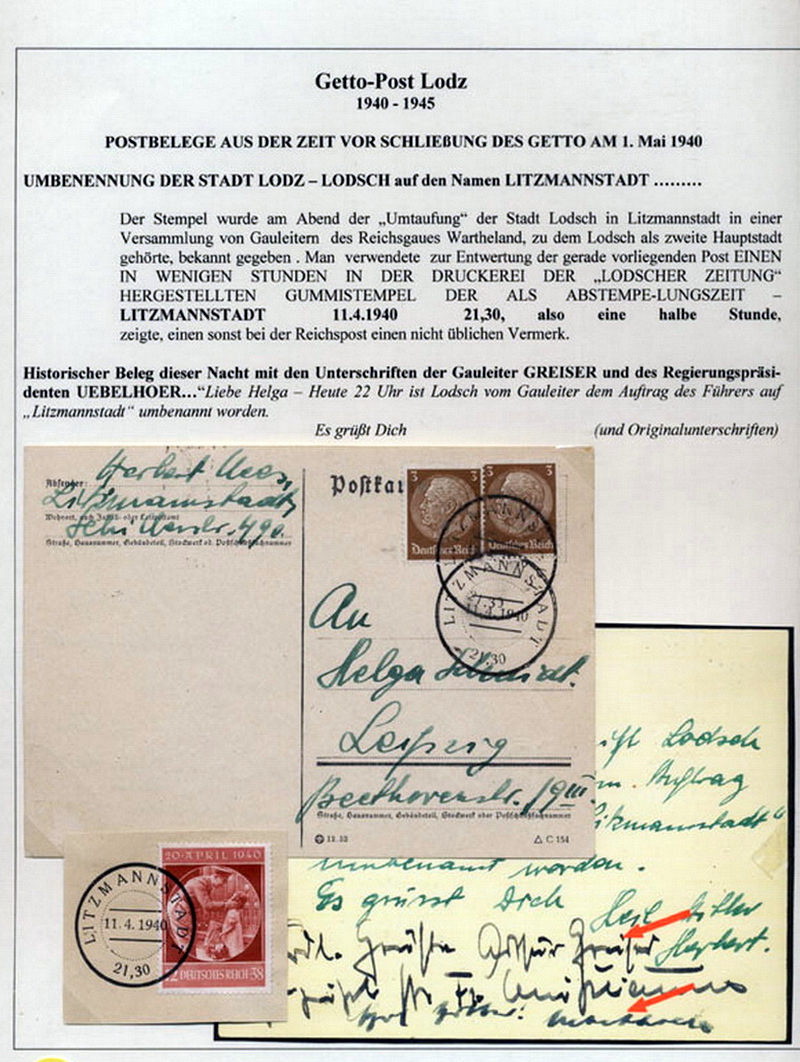 Getto-Post Lodz
1940 - 1945
POSTBELEGE AUS DER ZEIT VOR SCHLIEßUNG DES GETTO AM 1. Mai 1940
UMBENENNUNG DER STADT LODZ – LODSCH auf den Namen LITZMANNSTADT .........
Der Stempel wurde am Abend der „Umtaufung“ der Stadt Lodsch in Litzmannstadt in einer
Versammlung von Gauleitern des Reichsgaues Wartheland, zu dem Lodsch als zweite Hauptstadt
gehörte, bekannt gegeben . Man verwendete zur Entwertung der gerade vorliegenden Post EINEN
IN WENIGEN STUNDEN IN DER DRUCKEREI DER „LODSCHER ZEITUNG“
HERGESTELLTEN GUMMISTEMPEL DER ALS ABSTEMPE-LUNGSZEIT –
LITZMANNSTADT 11.4.1940 21,30, also eine halbe Stunde,
zeigte, einen sonst bei der Reichspost einen nicht üblichen Vermerk.
Historischer Beleg dieser Nacht mit den Unterschriften der Gauleiter GREISER und des Regierungspräsi-
denten UEBELHOER...“Liebe Helga – Heute 22 Uhr ist Lodsch vom Gauleiter dem Auftrag des Führers auf
„Litzmannstadt“ umbenannt worden.
Es grüßt Dich (und Originalunterschriften)
Absender: Herbert
Litzmannstadt
Wohnort, auch Zustell- oder Leitpostamt
Straße, Hausnummer, Gebäudeteil, Stockwerk od. Postschließfachnummer
Postkar
3 3
Deutsches Reich Deutsches Reich
LITZMANNSTADT
11.4.1940
21,30
An
Helga Schmidt.
Leipzig
Beethovenstr. /9 III.
Straße, Hausnummer, Gebäudeteil, Stockwerk oder Postschließfachnummer
C 154
Lodsch
m. Auftrag
itzmannstadt“
umbenannt worden.
Es grüsst Dich
Heil Hitler
Herbert.
Grüße Arthur Greiser
20·APRIL 1940
LITZMANNSTADT
11.4.1940
21,30
12 DEUTSCHES REICH 38